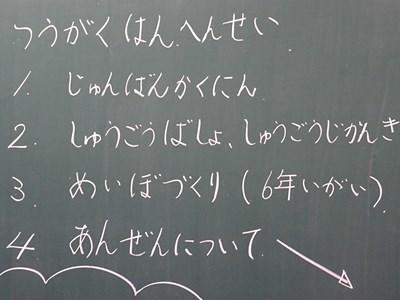 つうがくはん、へんせい
1. じゅんばんかくにん
2. しゅうごうばしょ、しゅうごうじかんき
3. めいぼづくり(6年いがい)
4 あんぜんについて